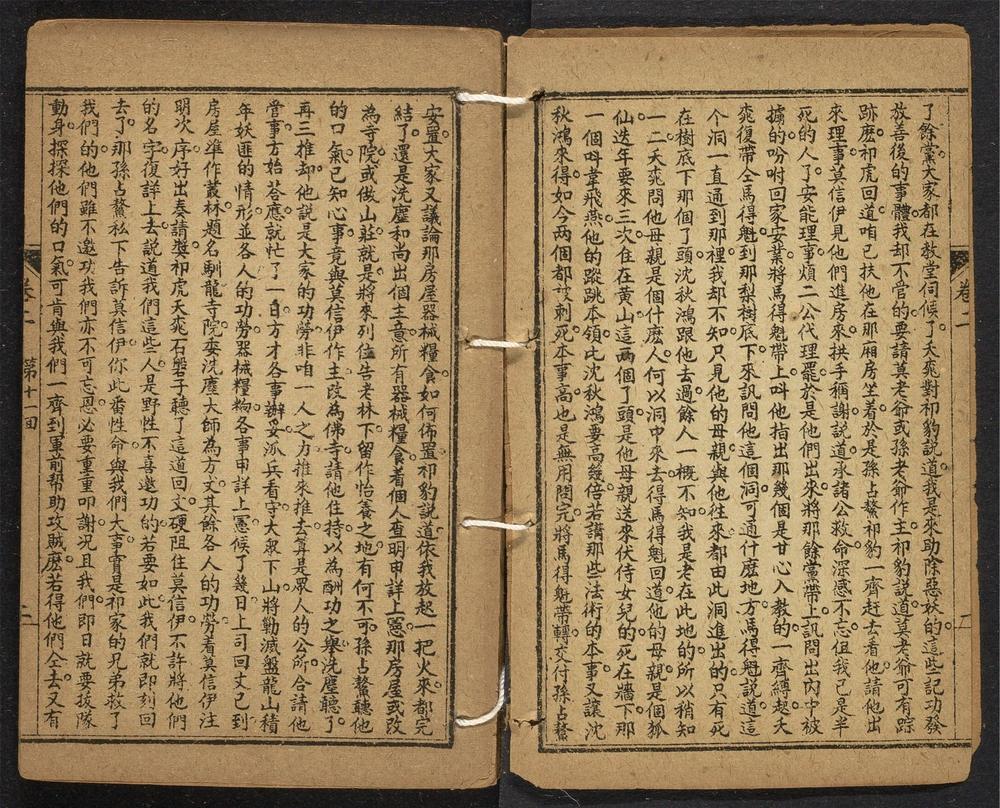 卷二
二
了餘黨大家都在教堂伺候了夭寃對祁豹説道我是來助除惡妖的這些記功發
放善後的事體我却不管的要請莫老爺或孫老爺作主祁豹説道莫老爺可有踪
跡麽祁虎回道咱已扶他在那厢房坐着於是孫占鰲祁豹一齊赶去看他請他出
來理事莫信伊見他們進房來拱手稱謝説道承諸公救命深感不忘但我已是半
死的人了安能理事煩二公代理罷於是他們出來將那餘黨帶上訊問出内中被
擄的吩咐回家安業將馬得魁帶上叫他指出那幾個是甘心入教的一齊縛起夭
寃復帶仝馬得魁到那梨樹底下來訊問他這個洞可通什麽地方馬得魁説道這
個洞一直通到那裡我却不知只見他的母親與他往來都由此洞進出的只有死
在樹底下那個丫頭沈秋鴻跟他去過餘人一概不知我是老在此地的所以稍知
一二夭寃問他母親是個什麽人何以洞中來去得馬得魁回道他的母親是個狐
仙迭年要來三次住在黄山這兩個丫頭是他母親送來伏侍女兒的死在牆下那
一個叫韋飛燕他的蹤跳本領比沈秋鴻要高幾倍若講那些法術的本事又讓沈
秋鴻來得如今两個都被刺死本事高也是無用問完將馬得魁帶轉交付孫占鰲
安置大家又議論那房屋器械糧食如何佈置祁豹説道依我放起一把火來都完
結了還是洗塵和尚出個主意所有器械糧食着個人查明申詳上憲那房屋或改
為寺院或做山莊就是將來列位告老林下留作怡養之地有何不可孫占鰲聽他
的口氣已知心事竟與莫信伊作主改為佛寺請他住持以為酬功之舉洗塵聽了
再三推却他説是大家的功勞非咱一人之力推來推去算是眾人的公所合請他
管事方始荅應就忙了一日方才各事辦妥派兵看守大衆下山將勦滅盤龍山積
年妖匪的情形並各人的功勞器械糧粮各事申詳上憲候了幾日上司回文已到
房屋準作叢林題名馴龍寺院委洗塵大師為方丈其餘各人的功勞着莫信伊注
明次序好出奏請奬祁虎夭寃石磐子聽了這道回文硬阻住莫信伊不許將他們
的名字復詳上去説道我們這些人是野性不喜邀功的若要如此我們就即刻回
去了那孫占鰲私下告訴莫信伊你此番性命與我們大事實是祁家的兄弟救了
我們的他們雖不邀功我們亦不可忘恩必要重重叩謝况且我們即日就要援隊
動身探探他們的口氣可肯與我們一齊到軍前帮助攻賊麽若得他們仝去又有
第十一回
二